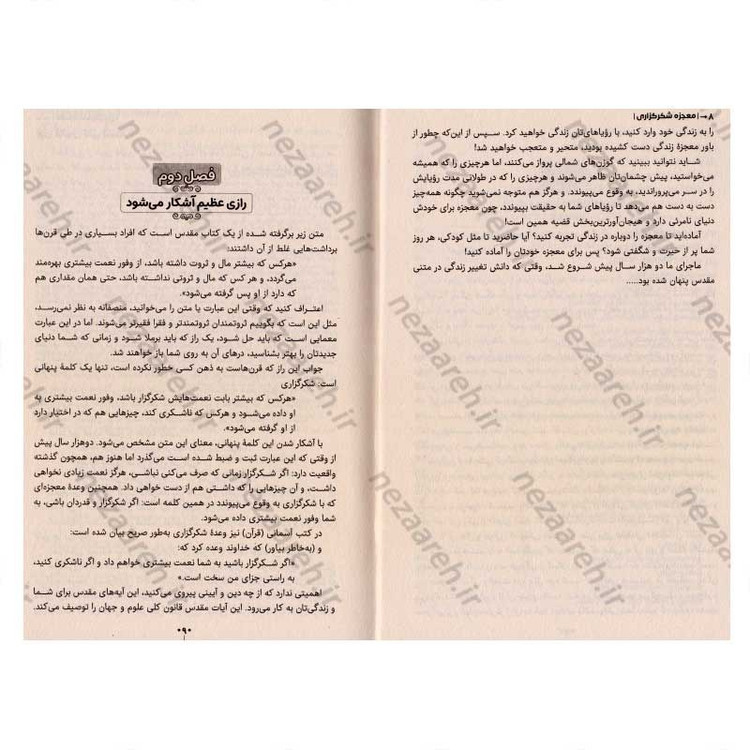 ۸ → | معجزه شکرگزاری |
را به زندگی خود وارد کنید، با رؤیاهای‌تان زندگی خواهید کرد. سپس از این‌که چطور از
باور معجزهٔ زندگی دست کشیده بودید، متحیر و متعجب خواهید شد!
شاید نتوانید ببینید که گوزن‌های شمالی پرواز می‌کنند، اما هرچیزی را که همیشه
می‌خواستید، پیش چشمان‌تان ظاهر می‌شوند و هرچیزی را که در طولانی مدت رؤیایش
را در سر می‌پروراندید، به وقوع می‌پیوندد. و هرگز هم متوجه نمی‌شوید چگونه همه‌چیز
دست به دست هم می‌دهد تا رؤیاهای شما به حقیقت بپیوندد، چون معجزه برای خودش
دنیای نامرئی دارد و هیجان‌آورترین‌بخش قضیه همین است!
آماده‌اید تا معجزه را دوباره در زندگی تجربه کنید؟ آیا حاضرید تا مثل کودکی، هر روز
شما پر از حیرت و شگفتی شود؟ پس برای معجزه خودتان را آماده کنید!
ماجرای ما دو هزار سال پیش شروع شد، وقتی که دانش تغییر زندگی در متنی
مقدس پنهان شده بود.....
فصل دوم
رازی عظیم آشکار می‌شود
متن زیر برگرفته شده از یک کتاب مقدس است که افراد بسیاری در طی قرن‌ها
برداشت‌هایی غلط از آن داشتند:
«هرکس که بیشتر مال و ثروت داشته باشد، از وفور نعمت بیشتری بهره‌مند
می‌گردد، و هر کس که مال و ثروتی نداشته باشد، حتی همان مقداری هم
که دارد از او پس گرفته می‌شود».
اعتراف کنید که وقتی این عبارت یا متن را می‌خوانید، منصفانه به نظر نمی‌رسد،
مثل این است که بگوییم ثروتمندان ثروتمندتر و فقرا فقیرتر می‌شوند. اما در این عبارت
معمایی است که باید حل شود، یک راز که باید برملا شود و زمانی که شما دنیای
جدیدتان را بهتر بشناسید، درهای آن به روی شما باز خواهند شد.
جواب این راز که قرن‌هاست به ذهن کسی خطور نکرده است، تنها یک کلمهٔ پنهانی
است: شکرگزاری
«هرکس که بیشتر بابت نعمت‌هایش شکرگزار باشد، وفور نعمت بیشتری به
او داده می‌شود و هرکس که ناشکری کند، چیزهایی هم که در اختیار دارد
از او گرفته می‌شود».
با آشکار شدن این کلمهٔ پنهانی، معنای این متن مشخص می‌شود. دوهزار سال پیش
از وقتی که این عبارت ثبت و ضبط شده است می‌گذرد اما هنوز هم، همچون گذشته
واقعیت دارد: اگر شکرگزار زمانی که صرف می‌کنی نباشی، هرگز نعمت زیادی نخواهی
داشت، و آن چیزهایی را که داشتی هم از دست خواهی داد. همچنین وعدهٔ معجزه‌ای
که با شکرگزاری به وقوع می‌پیوندد در همین کلمه است: اگر شکرگزار و قدردان باشی، به
شما وفور نعمت بیشتری داده می‌شود.
در کتب آسمانی (قرآن) نیز وعدهٔ شکرگزاری به‌طور صریح بیان شده است:
و (به‌خاطر بیاور) که خداوند وعده کرد که:
«اگر شکرگزار باشید به شما نعمت بیشتری خواهم داد و اگر ناشکری کنید،
به راستی جزای من سخت است.»
اهمیتی ندارد که از چه دین و آیینی پیروی می‌کنید، این آیه‌های مقدس برای شما و
زندگی‌تان به کار می‌رود. این آیات مقدس قانون کلی علوم و جهان را توصیف می‌کند.
nezaareh.ir